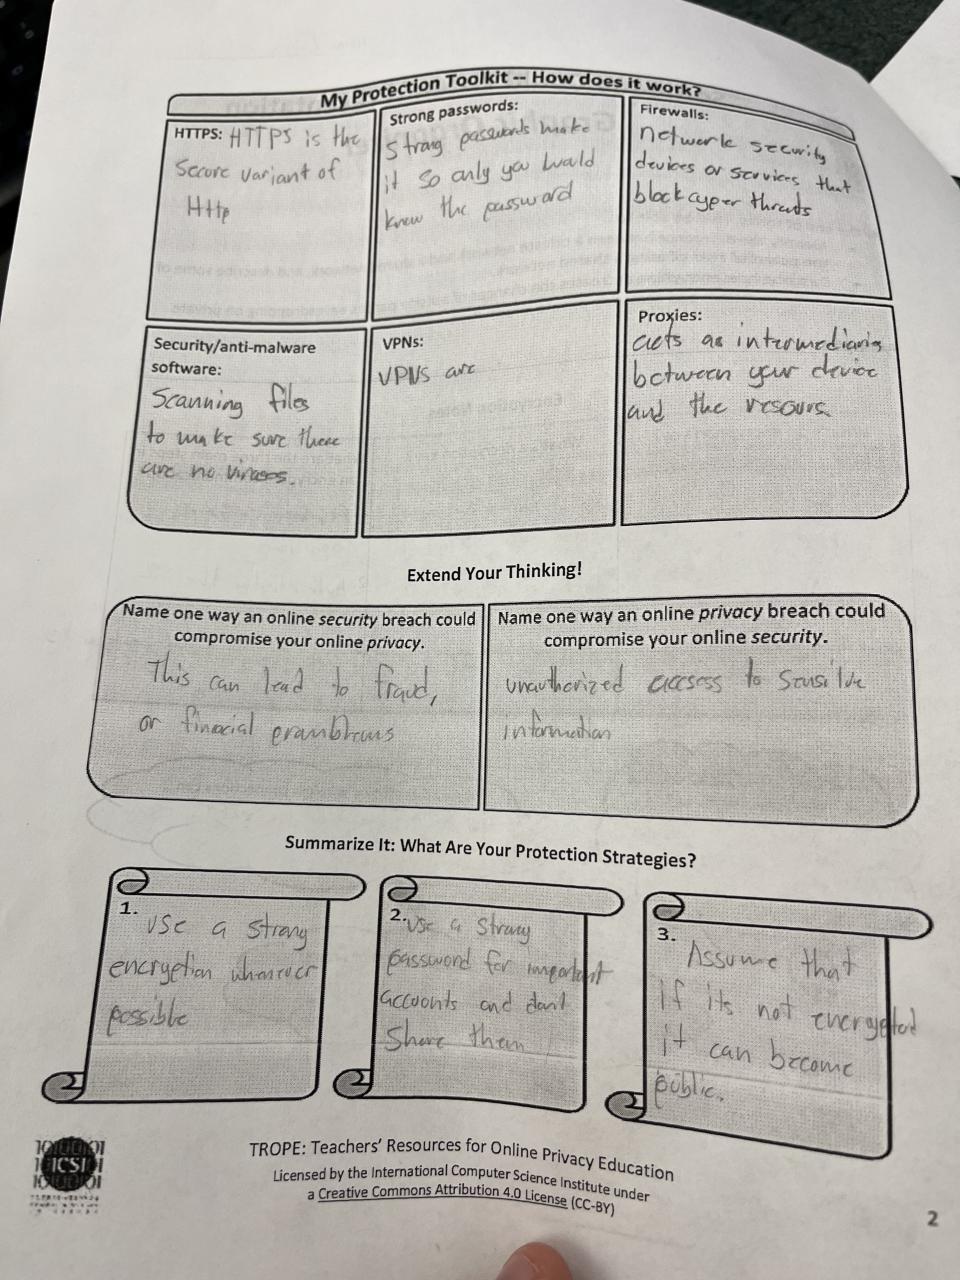 My Protection Toolkit -- How does it work?
HTTPS: HTTPS is the
Secure variant of
Http
Strong passwords:
Strong passwords make
it so only you would
know the password
Firewalls:
network security
devices or services that
block cyper threats
Security/anti-malware
software:
Scanning files
to make sure there
are no viruses.
VPNs:
VPNs are
Proxies:
acts as intermediaries
between your device
and the resours.
Extend Your Thinking!
Name one way an online security breach could
compromise your online privacy.
This can lead to fraud,
or finacial
Name one way an online privacy breach could
compromise your online security.
unauthorized accsess to
information
Summarize It: What Are Your Protection Strategies?
1.
Use a strong
encryption whenever
possible
2. Use a strong
password for important
accounts and dont
Share them
3.
Assume that
if its not encrypted
it can become
public.
ICSI
TROPE: Teachers' Resources for Online Privacy Education
Licensed by the International Computer Science Institute under
a Creative Commons Attribution 4.0 License (CC-BY)
2